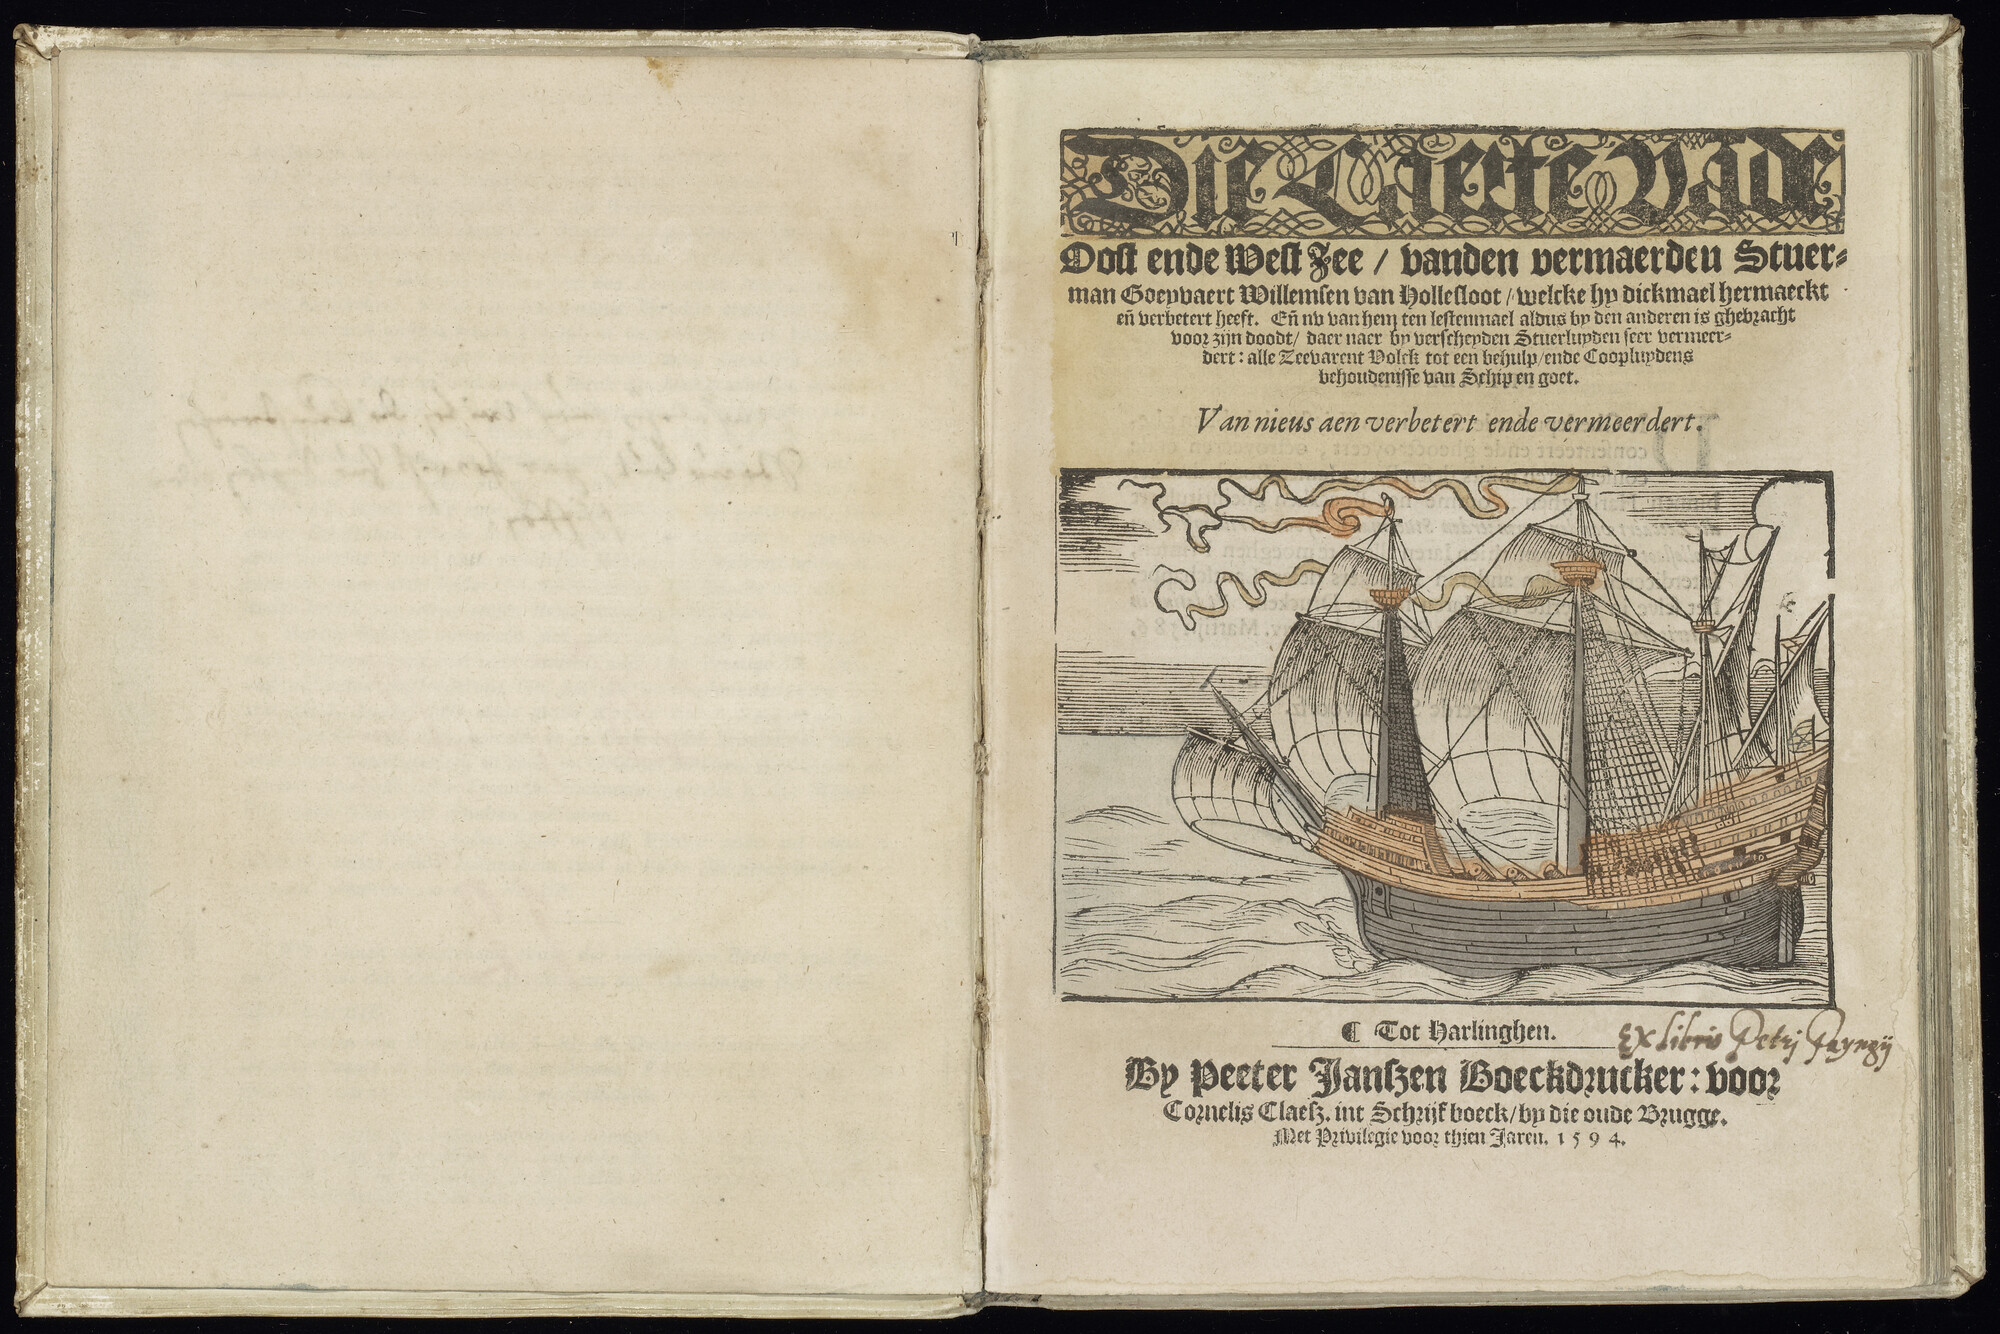 Die Caerte vāde
Oost ende West Zee / vanden vermaerden Stuer-
man Goeyvaert Willemsen van Hollesloot / welcke hy dickmael hermaeckt
eñ verbetert heeft. Eñ nv van hem ten lestenmael aldus by den anderen is ghebracht
voor zijn doodt / daer naer by verscheyden Stuerluyden seer vermeer-
dert : alle Zeevarent Volck tot een behulp / ende Coopluydens
behoudenisse van Schip en goet.
Van nieus aen verbetert ende vermeerdert.
¶ Tot Harlinghen.
Ex libris Petri
By Peeter Janszen Boeckdrucker : voor
Cornelis Claesz. int Schrijf boeck / by die oude Brugge.
Met Privilegie voor thien Jaren. 1594.